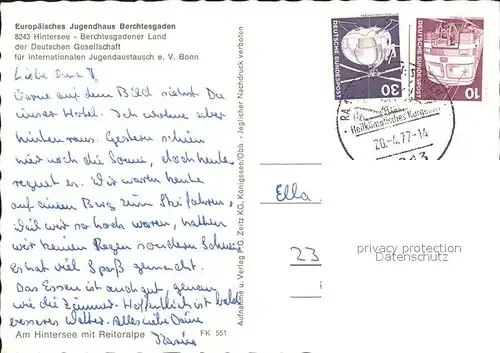 Europäisches Jugendhaus Berchtesgaden
8243 Hintersee - Berchtesgadener Land
der Deutschen Gesellschaft
für internationalen Jugendaustausch e. V. Bonn
Liebe Oma!
Vorne auf dem Bild siehst Du
unser Hotel. Ich wohne aber
hinten raus. Gestern schien
hier noch die Sonne, doch heute
regnet es. Wir waren heute
auf einem Berg zum Skifahren,
weil wir so hoch waren, hatten
wir keinen Regen sondern Schnee.
Es hat viel Spaß gemacht.
Das Essen ist auch gut, genau
wie die Zimmer. Hoffentlich ist bald
besseres Wetter. Alles Liebe Deine
Am Hintersee mit Reitoralpe
FK 551
Aufnahme u. Verlag P.G. Zeitz KG., Königssee/Obb. - Jeglicher Nachdruck verboten
DEUTSCHE BUNDESPOST
30
DEUTSCHE BUNDESPOST
10
Heilklimatisches Kurgebiet
20.-4.77-14
Ella
23
privacy protection
Datenschutz